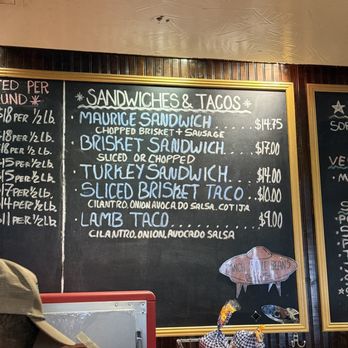 TED PER
UND *
$18 PER ½ LB.
$18 PER ½ LB.
$18 PER ½ LB.
$15 PER ½ LB.
$15 PER ½ LB.
$17 PER ½ LB.
$14 PER ½ LB.
$11 PER ½ LB.
SANDWICHES & TACOS
MAURICE SANDWICH $14.75
CHOPPED BRISKET + SAUSAGE
BRISKET SANDWICH $17.00
SLICED OR CHOPPED
TURKEY SANDWICH $14.00
SLICED BRISKET TACO $10.00
CILANTRO, ONION, AVOCADO SALSA, COTIJA
LAMB TACO $9.00
CILANTRO, ONION, AVOCADO SALSA